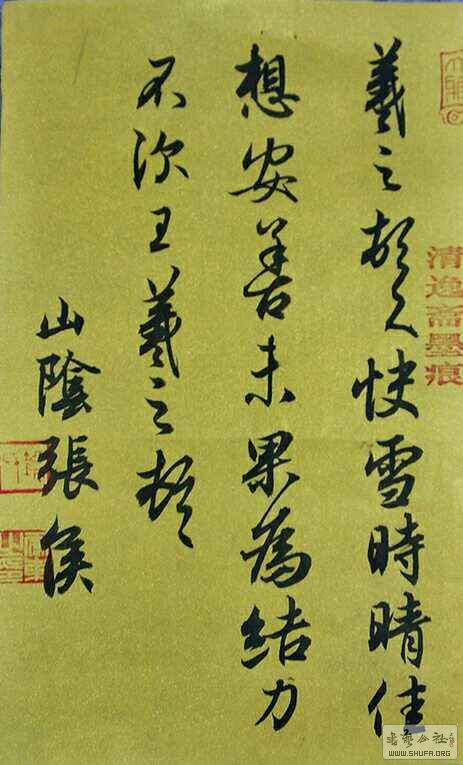 羲之頓首快雪時晴佳
想安善未果為結力
不次王羲之頓首
山陰張侯
清逸斋墨痕
书艺公社
WWW.SHUFA.ORG